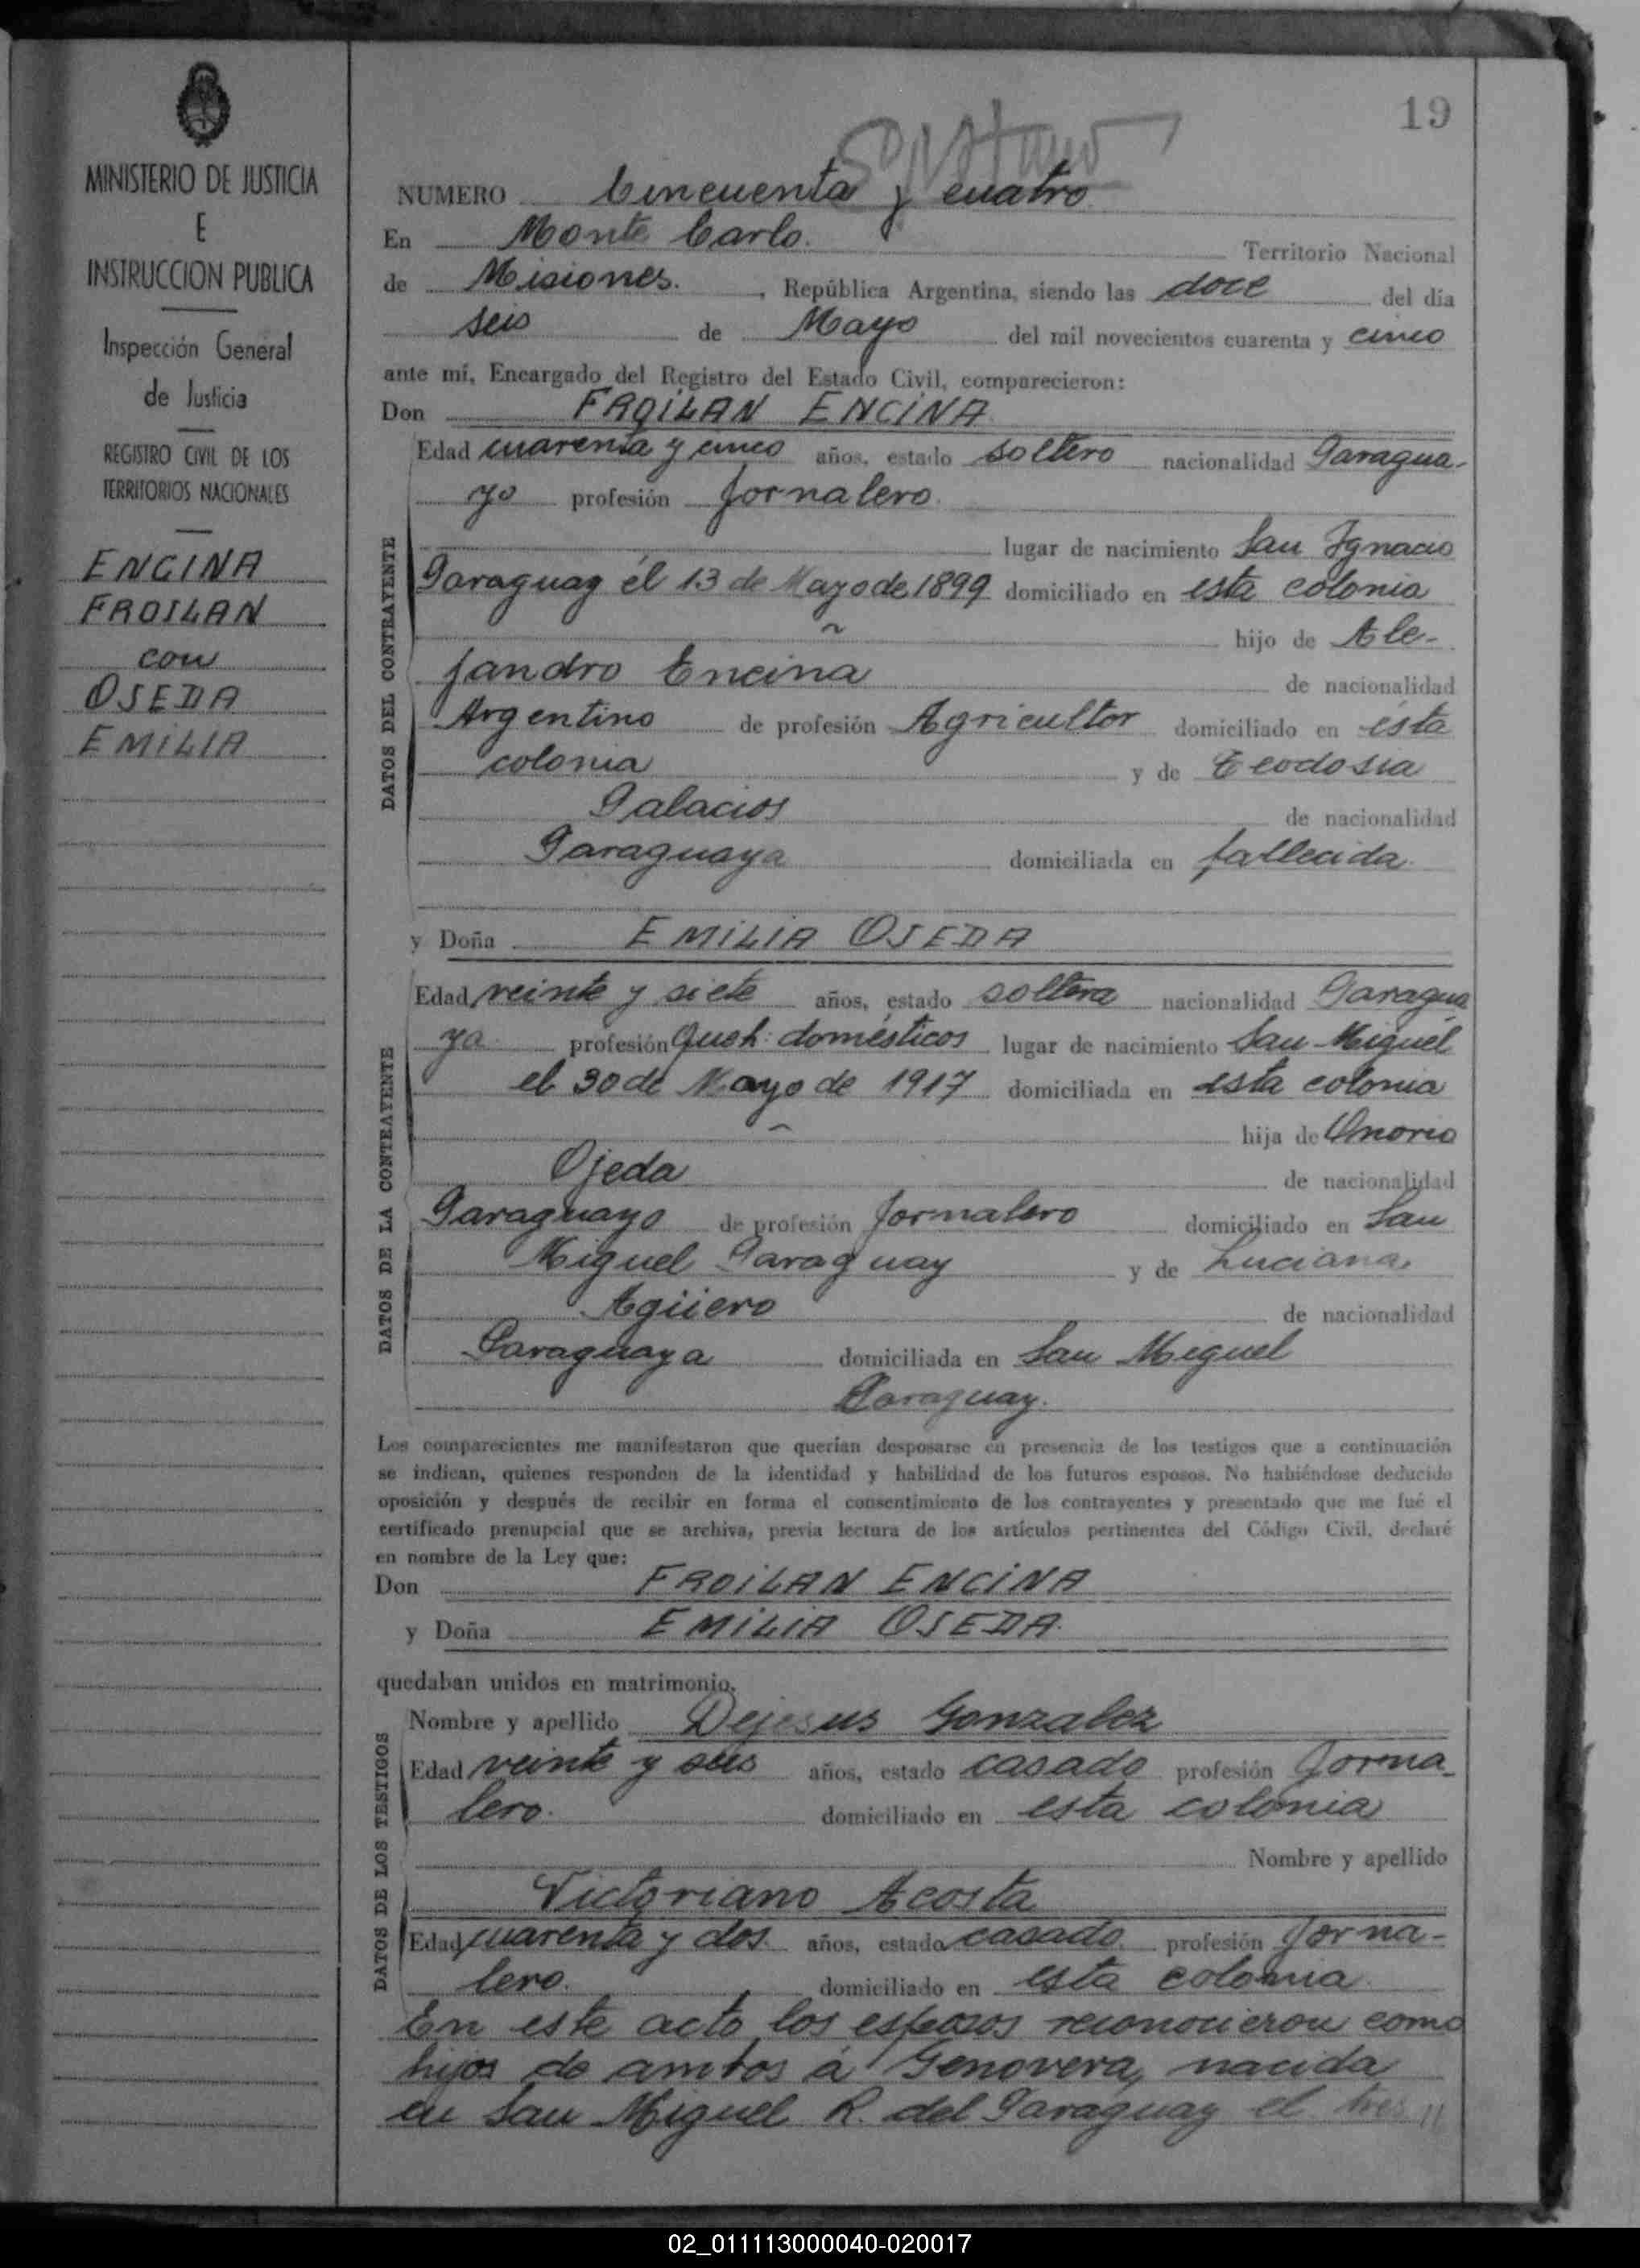 19
MINISTERIO DE JUSTICIA
E
INSTRUCCION PUBLICA
Inspección General
de Justicia
REGISTRO CIVIL DE LOS
TERRITORIOS NACIONALES
ENCINA
FROILAN
con
OJEDA
EMILIA
NUMERO Cincuenta y cuatro
En Monte Carlo. Territorio Nacional
de Misiones. , República Argentina, siendo las doce del día
seis de Mayo del mil novecientos cuarenta y cinco
ante mí, Encargado del Registro del Estado Civil, comparecieron:
Don FROILAN ENCINA
DATOS DEL CONTRAYENTE
Edad cuarenta y cinco años, estado soltero nacionalidad Paragua-
yo profesión jornalero.
lugar de nacimiento San Ignacio
Paraguay el 13 de Mayo de 1899 domiciliado en esta colonia
hijo de Ale-
jandro Encina de nacionalidad
Argentino de profesión Agricultor domiciliado en ésta
colonia y de Teodosia
Palacios de nacionalidad
Paraguaya domiciliada en fallecida.
y Doña EMILIA OJEDA
DATOS DE LA CONTRAYENTE
Edad veinte y siete años, estado soltera nacionalidad Paragua
ya profesión Queh. domésticos lugar de nacimiento San Miguel
el 30 de Mayo de 1917 domiciliada en esta colonia
hija de Onorio
Ojeda de nacionalidad
Paraguayo de profesión Jornalero domiciliado en San
Miguel Paraguay y de Luciana
Agüero de nacionalidad
Paraguaya domiciliada en San Miguel
Paraguay.
Los comparecientes me manifestaron que querían desposarse en presencia de los testigos que a continuación
se indican, quienes responden de la identidad y habilidad de los futuros esposos. No habiéndose deducido
oposición y después de recibir en forma el consentimiento de los contrayentes y presentado que me fué el
certificado prenupcial que se archiva, previa lectura de los artículos pertinentes del Código Civil, declaré
en nombre de la Ley que:
Don FROILAN ENCINA
y Doña EMILIA OJEDA.
quedaban unidos en matrimonio.
DATOS DE LOS TESTIGOS
Nombre y apellido Dejesus Gonzalez
Edad veinte y seis años, estado casado profesión Jorna-
lero. domiciliado en esta colonia
Nombre y apellido
Victoriano Acosta
Edad cuarenta y dos años, estado casado profesión Jorna-
lero. domiciliado en esta colonia
En este acto los esposos reconocieron como
hijos de ambos a Genoveva, nacida
en San Miguel R. del Paraguay el tres //
02_011113000040-020017